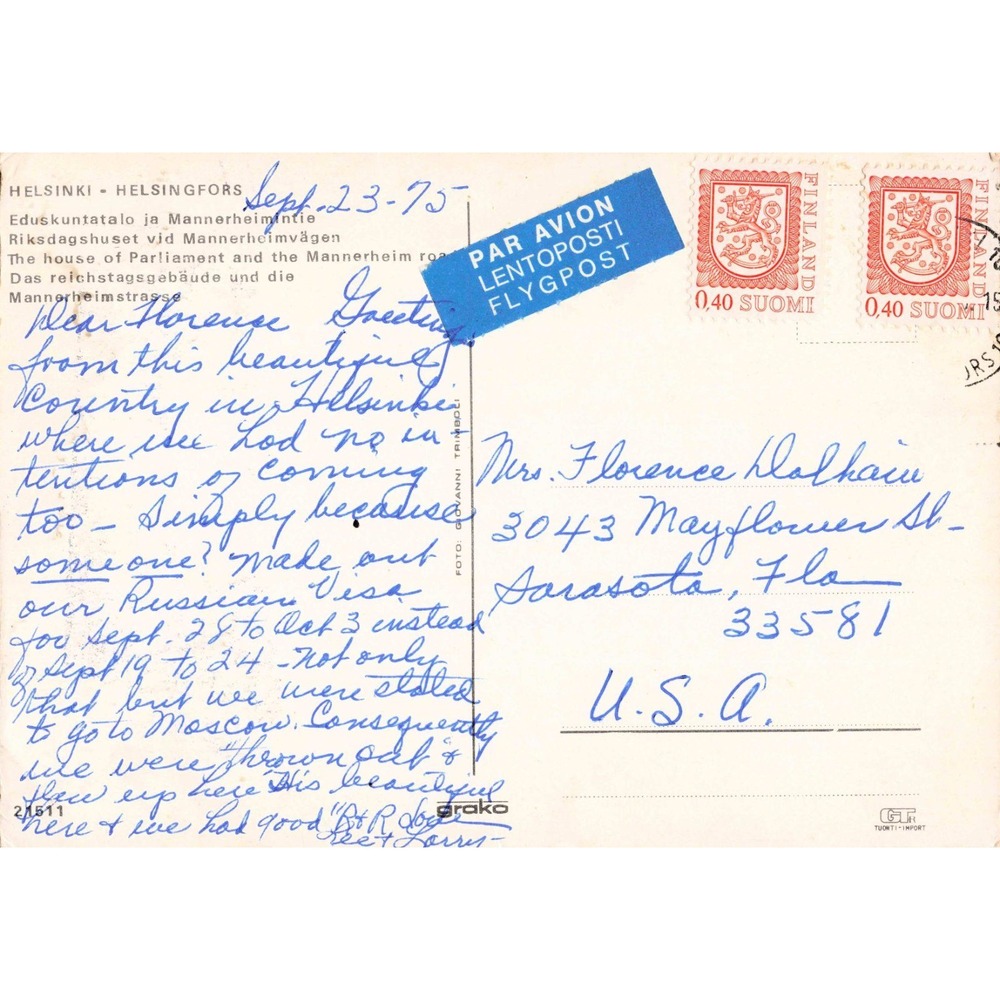 HELSINKI - HELSINGFORS
Sept. 23-75
Eduskuntatalo ja Mannerheimintie
Riksdagshuset vid Mannerheimvägen
The house of Parliament and the Mannerheim roa
Das reichstagsgebäude und die
Mannerheimstrasse
Dear Florence Greetings
from this beautiful
Country in Helsinki
where we had no in-
tentions of coming
too - Simply because
someone? made out
our Russian Visa
for Sept. 28 to Oct 3 instead
of Sept 19 to 24 - Not only
that but we were slated
to go to Moscow. Consequently
we were "thrown out" &
flew up here. His beautiful
here & we had good "R & R" Love
Lee & Larry -
PAR AVION
LENTOPOSTI
FLYGPOST
FINLAND
0,40 SUOMI
FINLAND
0,40 SUOMI
15
Mrs. Florence
3043 Mayflower St-
Sarasota, Fla
33581
U.S.A.
FOTO: GIOVANNI TRIMBOLI
21511
grako
GT
TUONTI-IMPORT